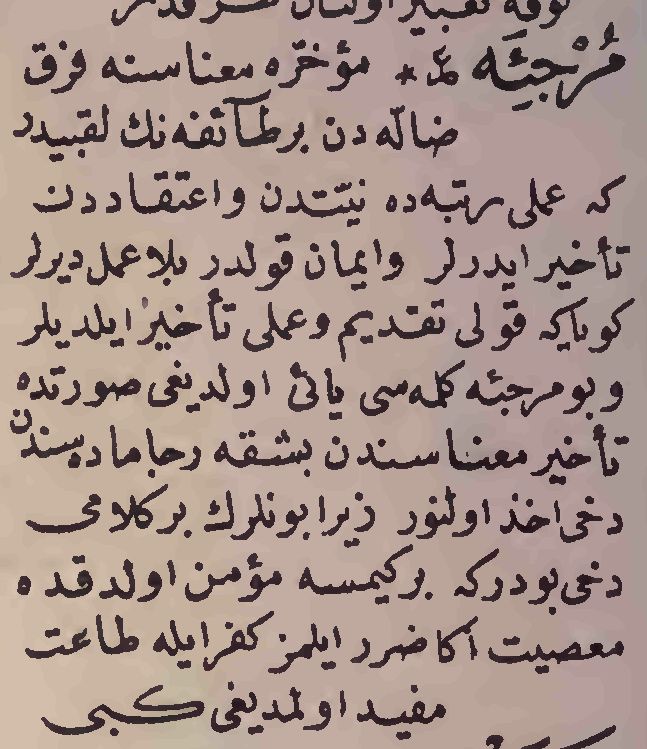 مُرْجِئَه ع * مؤخّره معناسنه فرق
ضالّه دن بر طآئفه نك لقبيدر
كه عملى رتبه ده نيّتدن و اعتقاددن
تأخير ايدرلر و ايمان قولدر بلا عمل ديرلر
كوياكه قولى تقديم و عملى تأخير ايلديلر
و بو مرجئه كلمه سى يائى اولديغى صورتده
تأخير معناسندن بشقه رجا ماده سندن
دخى اخذ اولنور زيرا بونلرك بر كلامى
دخى بودركه بر كيمسه مؤمن اولدقده
معصيت آكا ضرر ايلمز كفر ايله طاعت
مفيد اولمديغى كبى